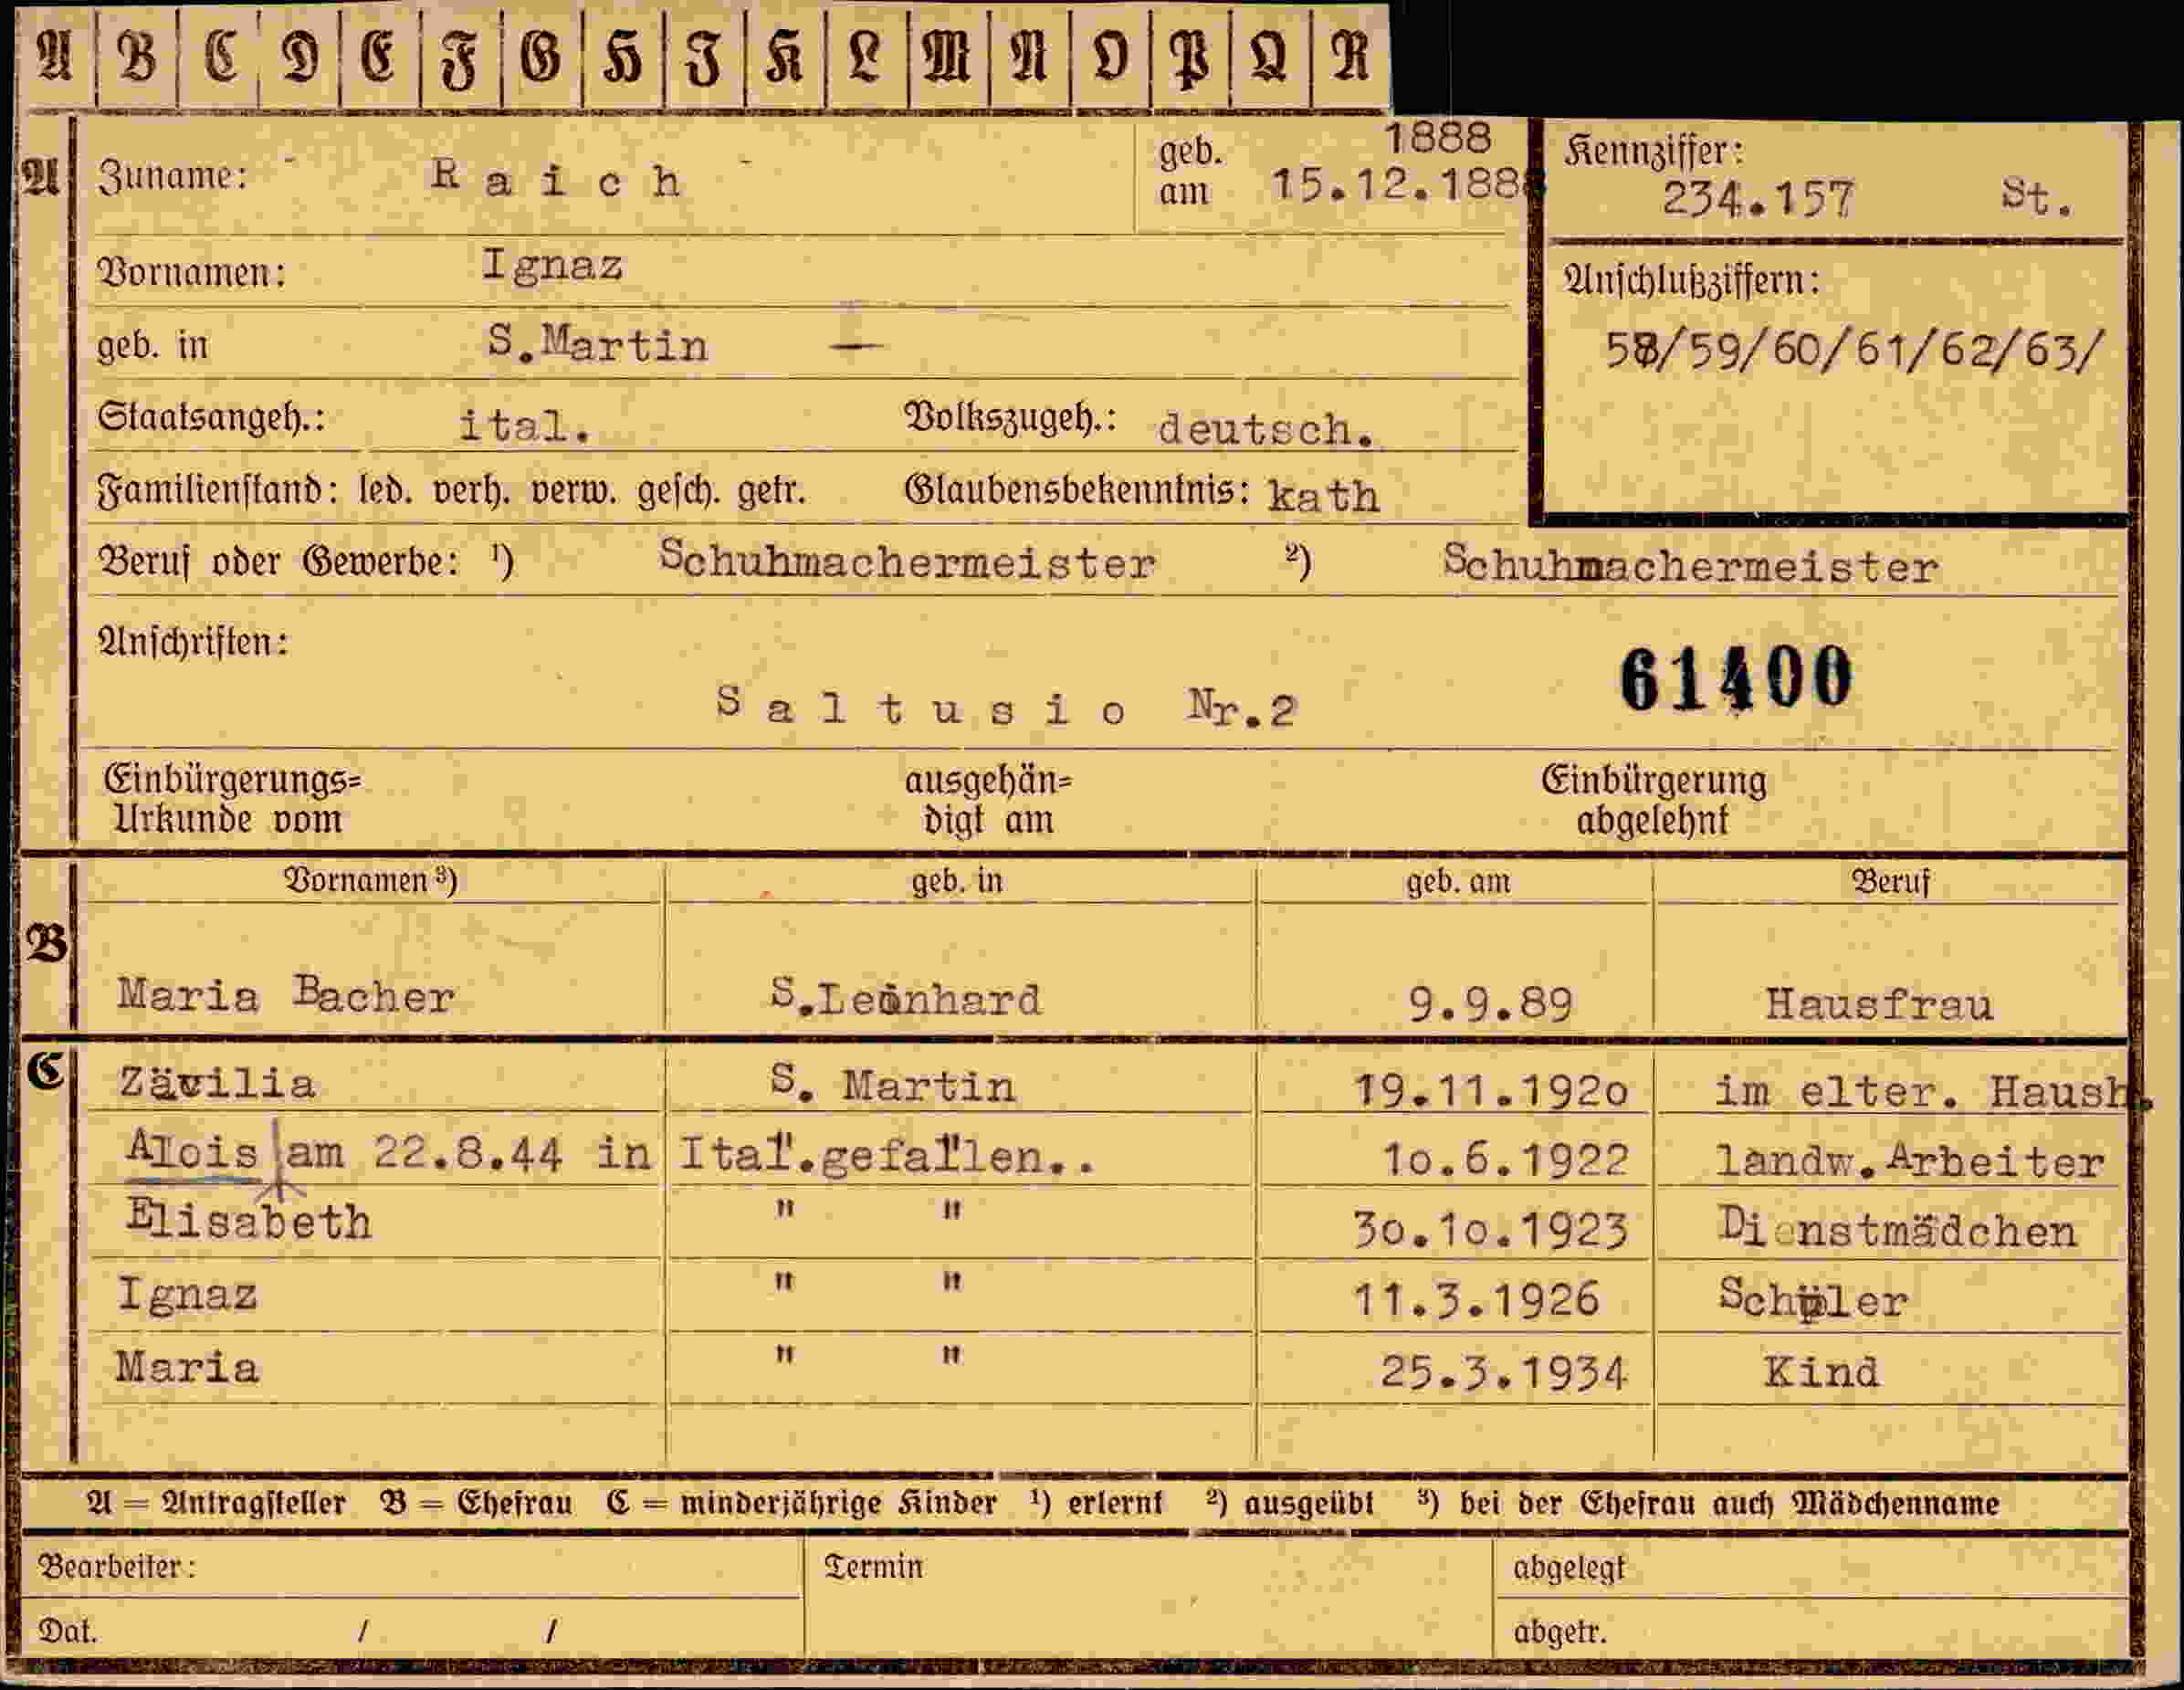 A B C D E F G H I K L M N O P Q R
A Zuname: R a i c h geb. am 1888 15.12.188
Kennziffer: 234.157 St.
Vornamen: Ignaz
Anschlußziffern:
geb. in S.Martin —
58/59/60/61/62/63/
Staatsangeh.: ital. Volkszugeh.: deutsch.
Familienstand: led. verh. verw. gesch. getr. Glaubensbekenntnis: kath
Beruf oder Gewerbe: ¹) Schuhmachermeister ²) Schuhmachermeister
Anschriften:
61400
S a l t u s i o Nr.2
Einbürgerungs= ausgehän= Einbürgerung
Urkunde vom digt am abgelehnt
Vornamen ³) geb. in geb. am Beruf
B
Maria Bacher S.Leonhard 9.9.89 Hausfrau
C S. Martin 19.11.1920 im elter. Haush.
Alois am 22.8.44 in Ital.gefallen.. 10.6.1922 landw.Arbeiter
Elisabeth " " 30.10.1923 Dienstmädchen
Ignaz " " 11.3.1926 Schüler
Maria " " 25.3.1934 Kind
A = Antragsteller B = Ehefrau C = minderjährige Kinder ¹) erlernt ²) ausgeübt ³) bei der Ehefrau auch Mädchenname
Bearbeiter: Termin abgelegt
Dat. / / abgetr.